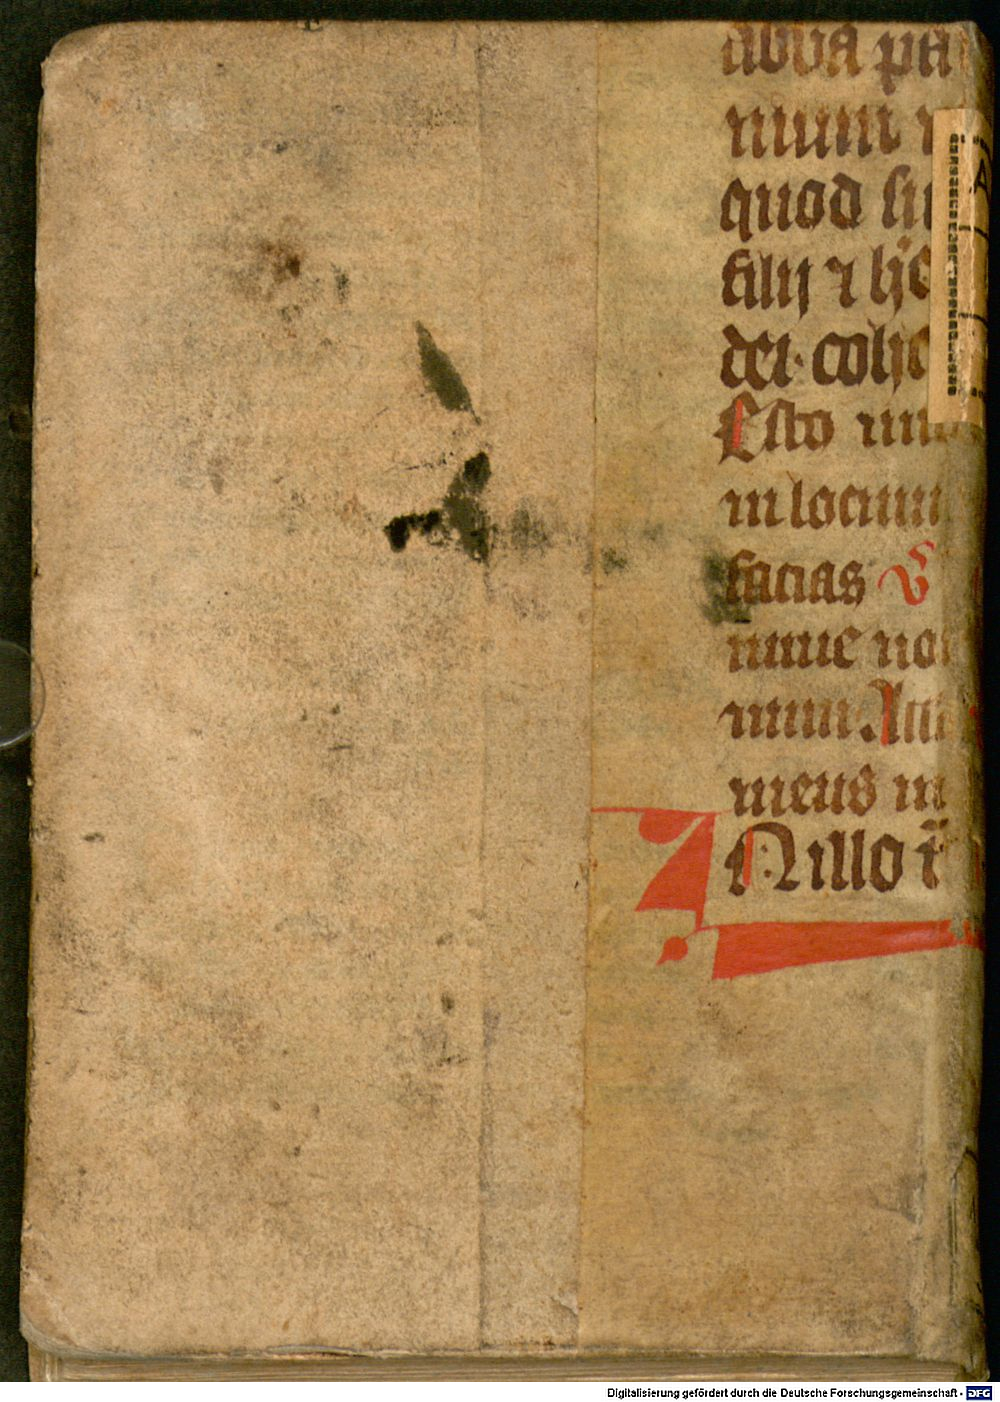 abba pa
mum
quod su
filij ⁊ hje
dei cohe
Esto
in locum
facias ℣
nunc no
num Am
meus in
N illo t̄
A
Digitalisierung gefördert durch die Deutsche Forschungsgemeinschaft - DFG